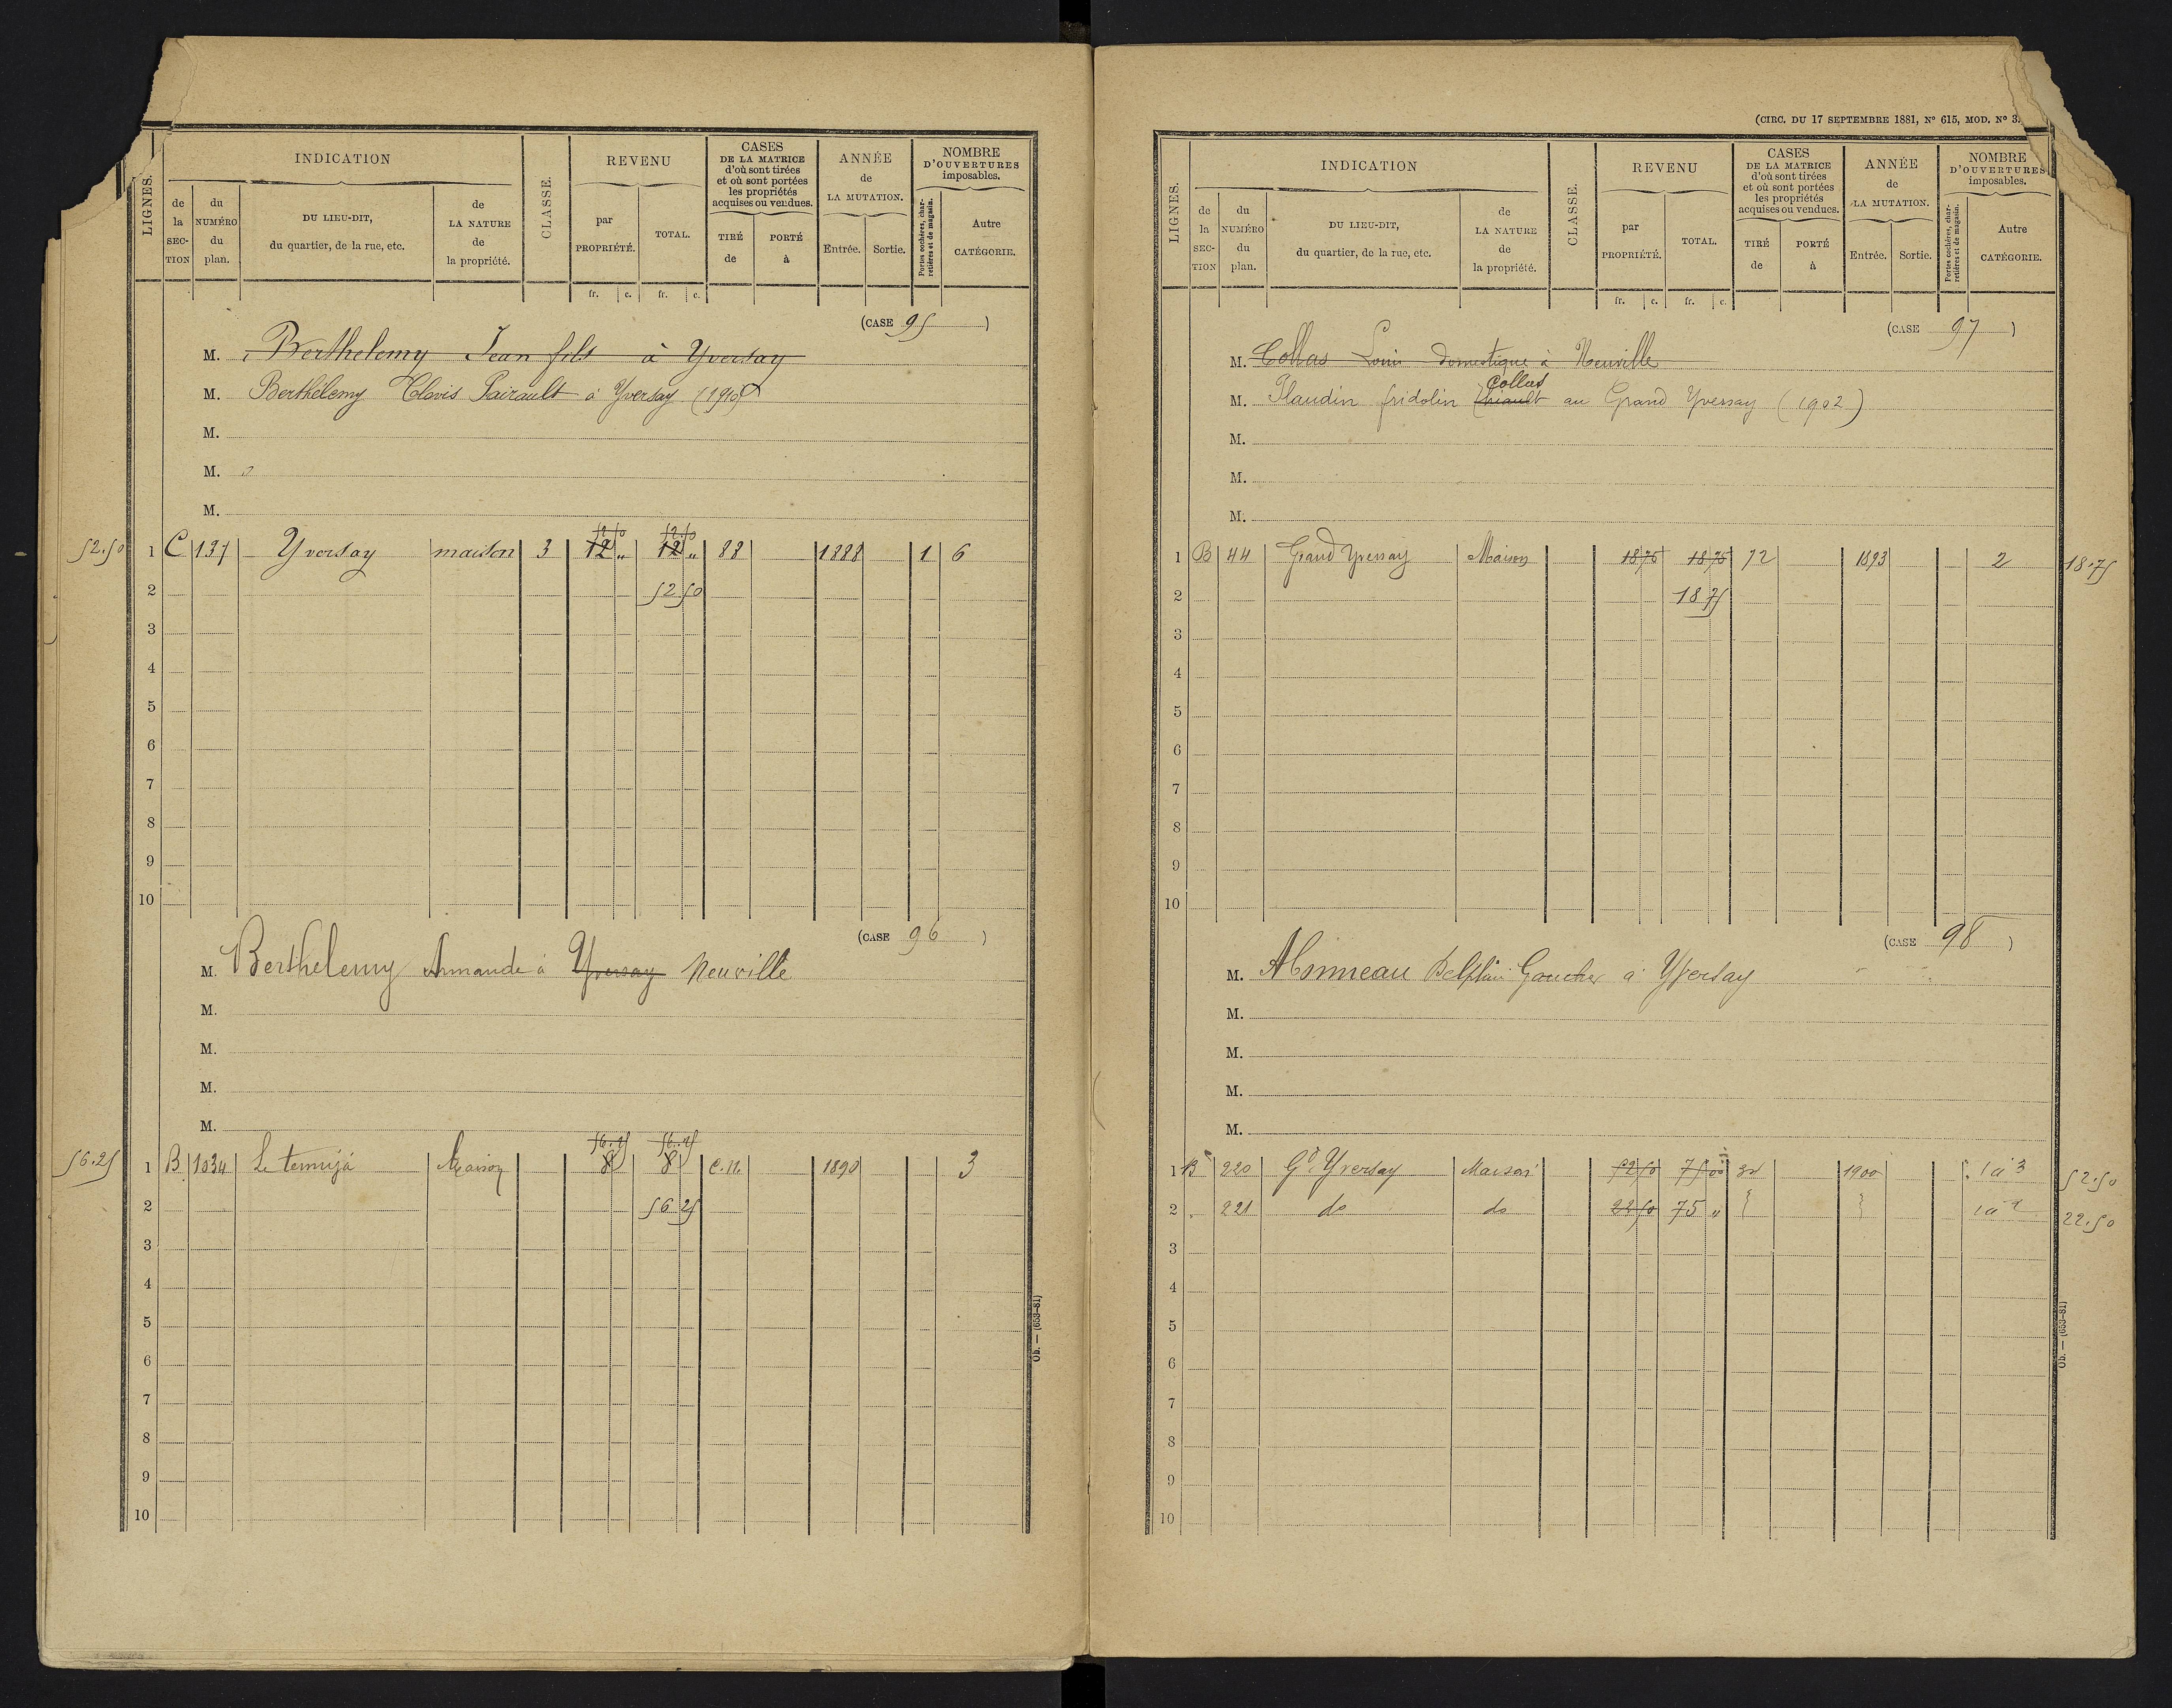 INDICATION
CLASSE.
REVENU
CASES
DE LA MATRICE
d'où sont tirées
et où sont portées
les propriétés
acquises ou vendues.
ANNÉE
de
LA MUTATION.
NOMBRE
D'OUVERTURES
imposables.
LIGNES.
de la SECTION
du NUMÉRO du plan.
DU LIEU-DIT,
du quartier, de la rue, etc.
de LA NATURE de la propriété.
par PROPRIÉTÉ.
TOTAL.
TIRÉ de
PORTÉ à
Entrée.
Sortie.
Portes cochères, charretières et de magasin.
Autre CATÉGORIE.
fr. c. fr. c.
(CASE 95)
M. Berthelemy Jean fils à Yversay
M. Berthelemy Clovis Pairault à Yversay (1910)
M.
M.
M.
52.50 1 C 137 Yversay maison 3 12 " 12 " 88 1888 1 6
52.50 52.50
2 52 50
3
4
5
6
7
8
9
10
(CASE 96)
M. Berthelemy Armande à Yversay Neuville
M.
M.
M.
M.
56.25 56.25
56.25 1 B 1034 Maison 8 8 C.N. 1890 3
2 56 25
3
4
5
6
7
8
9
10
Ob. — (653-81)
(CIRC. DU 17 SEPTEMBRE 1881, N° 615, MOD. N° 3.
INDICATION
CLASSE.
REVENU
CASES
DE LA MATRICE
d'où sont tirées
et où sont portées
les propriétés
acquises ou vendues.
ANNÉE
de
LA MUTATION.
NOMBRE
D'OUVERTURES
imposables.
LIGNES.
de la SECTION
du NUMÉRO du plan.
DU LIEU-DIT,
du quartier, de la rue, etc.
de LA NATURE de la propriété.
par PROPRIÉTÉ.
TOTAL.
TIRÉ de
PORTÉ à
Entrée.
Sortie.
Portes cochères, charretières et de magasin.
Autre CATÉGORIE.
fr. c. fr. c.
(CASE 97)
M. Collas Louis domestique à Neuville
Collas
M. Plaudin fridolin au Grand Yversay (1902)
M.
M.
M.
1 B 44 Grand Yversay Maison 18 75 18 75 72 1893 2 18.75
2 18 75
3
4
5
6
7
8
9
10
(CASE 98)
M. Monneau Delphin Gaucher à Yversay
M.
M.
M.
M.
1 B 220 Gd Yversay Maison 52 50 75 00 1900 1 à 3 52.50
2 221 do do 22 50 75 " 22.50
3
4
5
6
7
8
9
10
Ob. — (653-81)